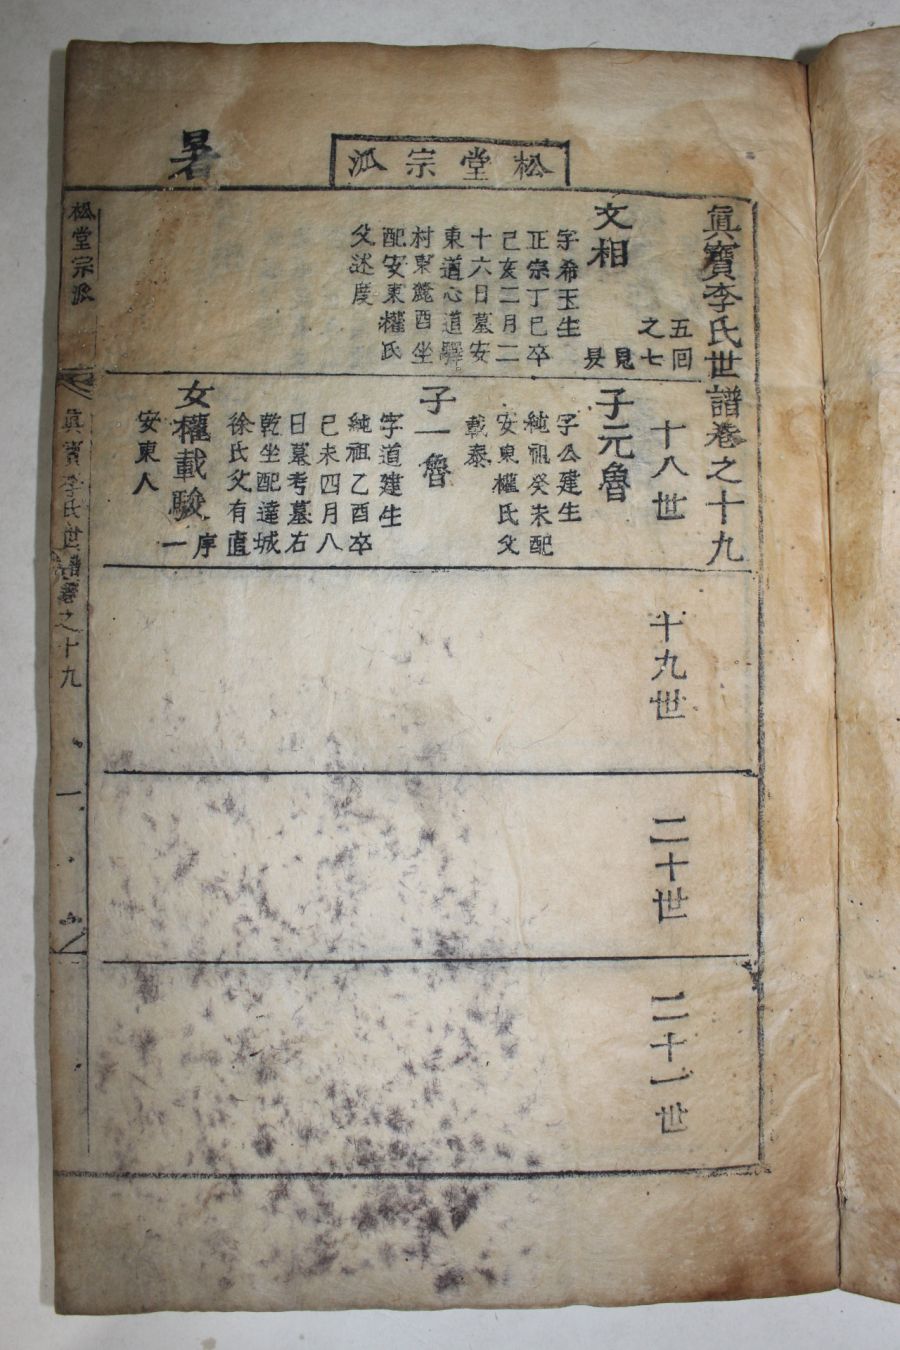 松堂宗派
暑
眞寶李氏世譜卷之十九
五回
之七
見
旻
文相
字希玉生
正宗丁巳卒
己亥二月二
十六日墓安
東道心道驛
村東麓酉坐
配安東權氏
父述度
十八世
子元魯
字公建生
純祖癸未配
安東權氏父
載泰
子一魯
字道建生
純祖乙酉卒
己未四月八
日墓考墓右
乾坐配達城
徐氏父有直
女權載駿
序
一
安東人
十九世
二十世
二十一世
松堂宗派
眞寶李氏世譜卷之十九
一